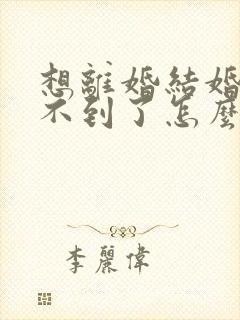 想離婚結婚
不到了怎麼
李麗偉